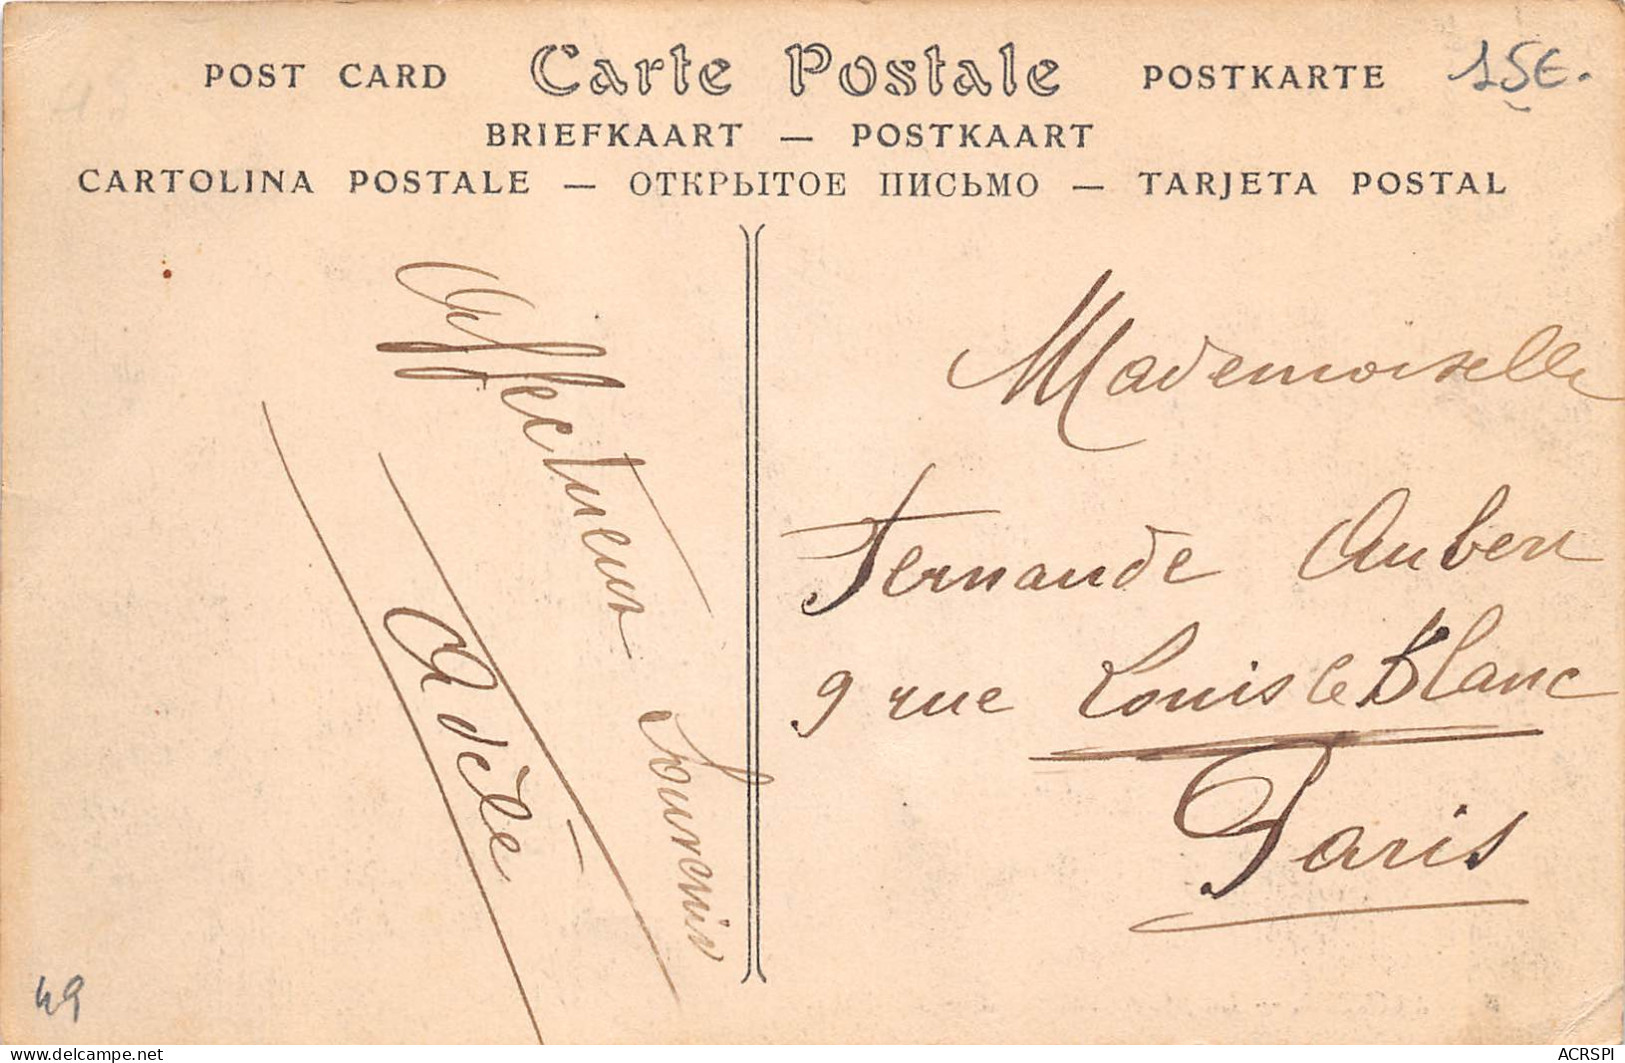 POST CARD Carte Postale POSTKARTE 15€.
BRIEFKAART — POSTKAART
CARTOLINA POSTALE — ОТКРЫТОЕ ПИСЬМО — TARJETA POSTAL
Affectueux Souvenir
Adèle
Mademoiselle
Fernande Auben
9 rue Louis le Blanc
Paris
49
www.delcampe.net
ACRSPI